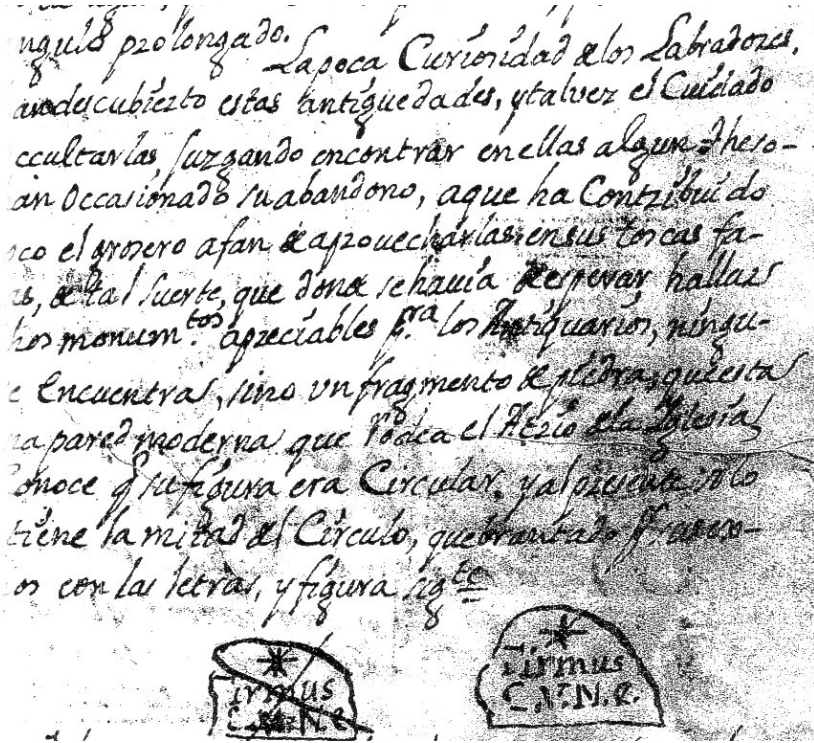 ngulo prolongado.
La poca Curiosidad de los Labradores,
an descubierto estas antiguedades, y tal vez el Cuidado
ccultarlas, Juzgando encontrar en ellas algun theso-
an Occasionado su abandono, a que ha Contribuido
oco el grosero afan de aprovecharlas en sus toscas fa-
as, de tal suerte, que donde se havia de esperar hallar
hos monum.tos apreciables p.ra los Antiquarios, ningu-
e Encuentra, sino un fragmento de piedra, que esta
na pared moderna que rodea el Atrio de la Iglesia
Conoce q su figura era Circular, y al presente solo
tiene la mitad del Circulo, quebrantado p.r
os con las letras, y figura sig.te
Firmus
C.V.N.C.
Firmus
C.V.N.C.